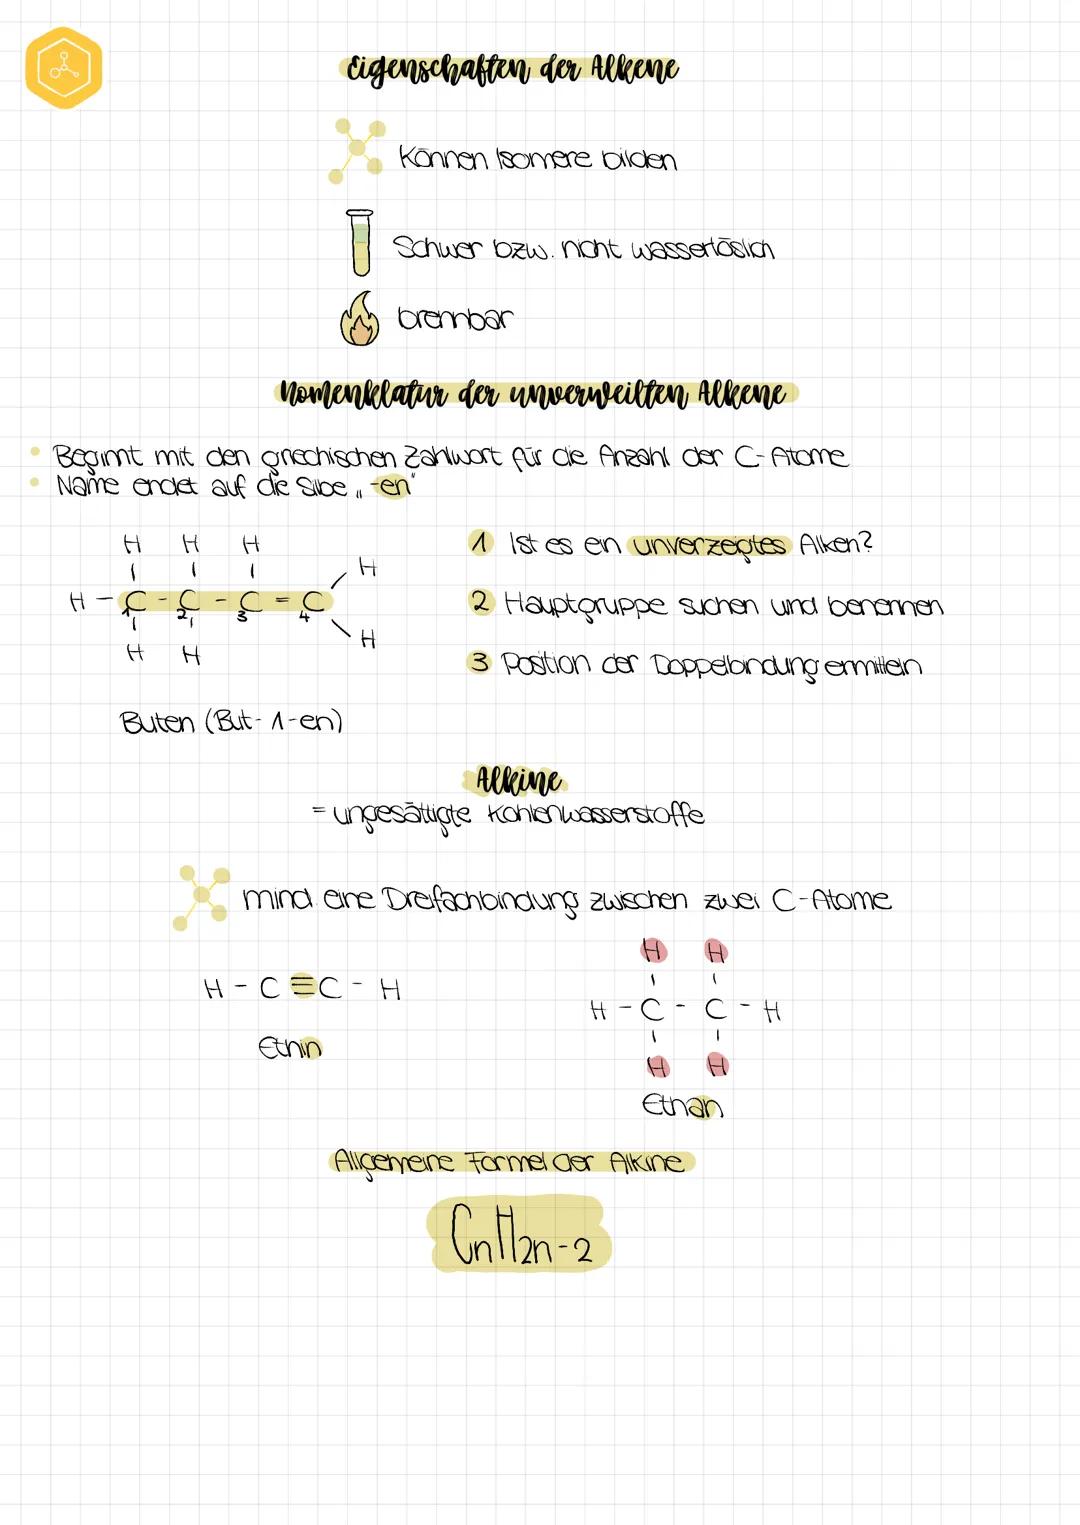 Eigenschaften der Alkene
Können Isomere bilden
Schwer bzw. nicht wasserlöslich
brennbar
Nomenklatur der unverweilten Alkene
• Beginnt mit den griechischen Zahlwort für die Anzahl der C-Atome
• Name endet auf die Silbe „-en"
H H H
H
H - C - C - C = C
1 2 3 4
H
H H
Buten (But-1-en)
1 Ist es ein unverzegtes Alken?
2 Hauptgruppe suchen und benennen
3 Position der Doppelbindung ermitteln
Alkine
= ungesättigte Kohlenwasserstoffe
mind. eine Dreifachbindung zwischen zwei C-Atome
H - C ≡ C - H
Ethin
H H
H - C - C - H
H H
Ethan
Allgemeine Formel der Alkine
CnH2n-2